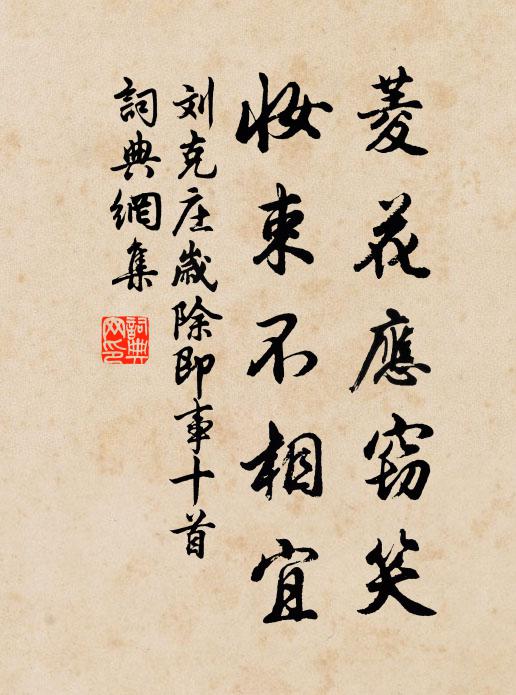 菱花應窃笑
妝束不相宜
刘克庄歲除即事十首
詞典網集
詞典網印